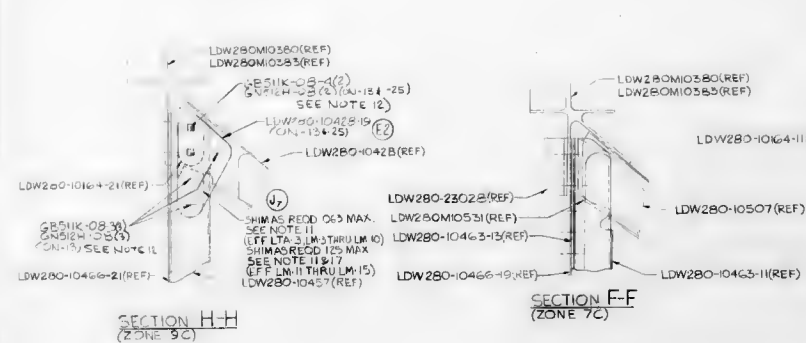 LDW280M10380(REF)
LDW280M10383(REF)
GB511K-08-4(2)
GN512H-08(2)(ON-13&-25)
SEE NOTE 12)
LDW280-10428-19
(ON-13&-25)
E2
LDW280-10428(REF)
LDW280-10164-21(REF)
J7
GB511K-08-3(3)
GN512H-08(3)
(ON-13) SEE NOTE 12
SHIM AS REQD .063 MAX.
SEE NOTE 11
(EFF LTA-3,LM-3 THRU LM-10)
SHIM AS REQD .125 MAX
SEE NOTE 11 & 17
(EFF LM-11 THRU LM-15)
LDW280-10457(REF)
LDW280-10466-21(REF)
SECTION H-H
(ZONE 9C)
LDW280M10380(REF)
LDW280M10383(REF)
LDW280-10164-11
LDW280-23028(REF)
LDW280M10531(REF)
LDW280-10507(REF)
LDW280-10463-13(REF)
LDW280-10466-19(REF)
LDW280-10463-11(REF)
SECTION F-F
(ZONE 7C)